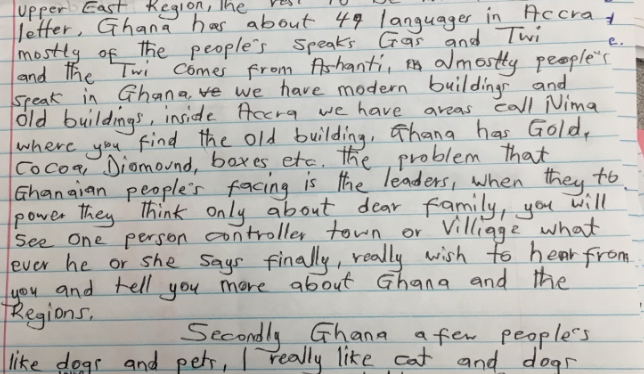 Upper East Region, the rest to be
letter, Ghana has about 49 languages in Accra
mostly of the people's speaks Gas and Twi
and the Twi comes from Ashanti, almostly people's
speak in Ghana, we have modern buildings and
old buildings, inside Accra we have areas call Nima
where you find the old building, Ghana has Gold,
Cocoa, Diomound, boxes etc. the problem that
Ghanaian people's facing is the leaders, when they to
power they think only about dear family, you will
see one person controller town or Villigge what
ever he or she says finally, really wish to hear from
you and tell you more about Ghana and the
Regions.
Secondly Ghana a few people's
like dogs and pets, I really like cat and dogs